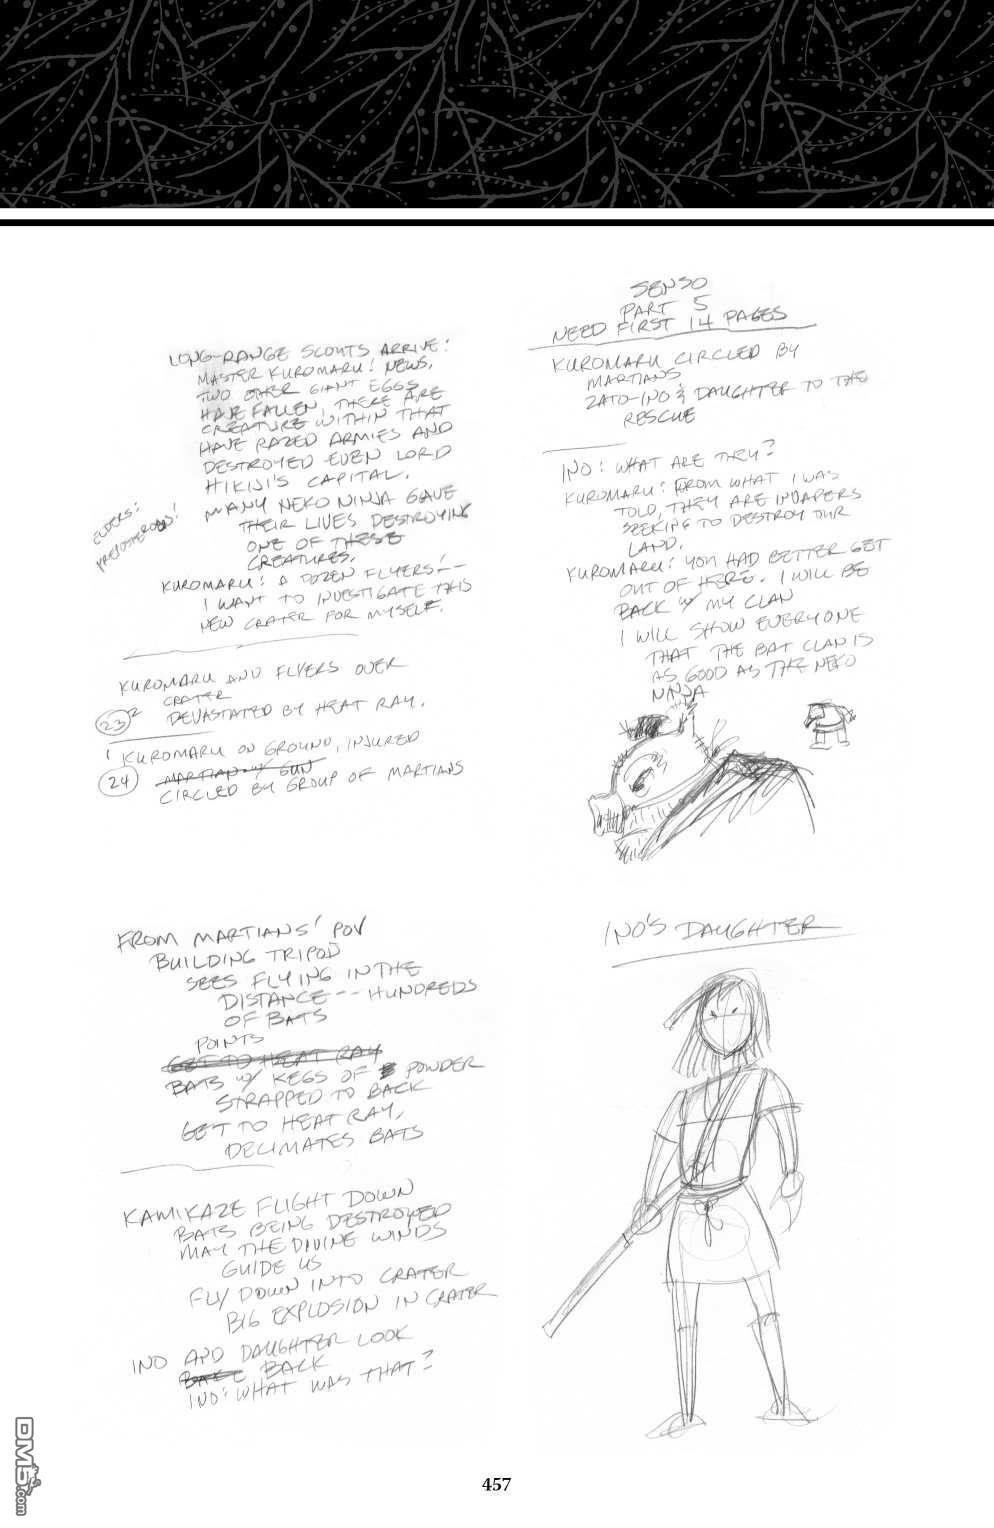 LONG-RANGE SCOUTS ARRIVE:
MASTER KUROMARU! NEWS.
TWO OTHER GIANT EGGS
HAVE FALLEN, THERE ARE
CREATURE WITHIN THAT
HAVE RAZED ARMIES AND
DESTROYED EVEN LORD
HIKIJI'S CAPITAL.
MANY NEKO NINJA GAVE
THEIR LIVES DESTROYING
ONE OF THESE
CREATURES.
ELDERS:
PREPOSTEROUS!
KUROMARU: A DOZEN FLYERS--
I WANT TO INVESTIGATE THIS
NEW CRATER FOR MYSELF.
KUROMARU AND FLYERS OVER
CRATER
23 2 DEVASTATED BY HEAT RAY.
1 KUROMARU ON GROUND, INJURED
24 MARTIAN w/ GUN
CIRCLED BY GROUP OF MARTIANS
SENSO
PART 5
NEED FIRST 14 PAGES
KUROMARU CIRCLED BY
MARTIANS
ZATO-INO & DAUGHTER TO THE
RESCUE
INO: WHAT ARE THEY?
KUROMARU: FROM WHAT I WAS
TOLD, THEY ARE INVADERS
SEEKING TO DESTROY OUR
LAND.
KUROMARU: YOU HAD BETTER GET
OUT OF HERE. I WILL BE
BACK w/ MY CLAN
I WILL SHOW EVERYONE
THAT THE BAT CLAN IS
AS GOOD AS THE NEKO
NINJA
FROM MARTIANS' POV
BUILDING TRIPOD
SEES FLYING IN THE
DISTANCE-- HUNDREDS
OF BATS
POINTS
GET TO HEAT RAY
BATS w/ KEGS OF POWDER
STRAPPED TO BACK
GET TO HEAT RAY,
DECIMATES BATS
KAMIKAZE FLIGHT DOWN
BATS BEING DESTROYED
MAY THE DIVINE WINDS
GUIDE US
FLY DOWN INTO CRATER
BIG EXPLOSION IN CRATER
INO AND DAUGHTER LOOK
BACK
INO: WHAT WAS THAT?
INO'S DAUGHTER
457
DM5.com